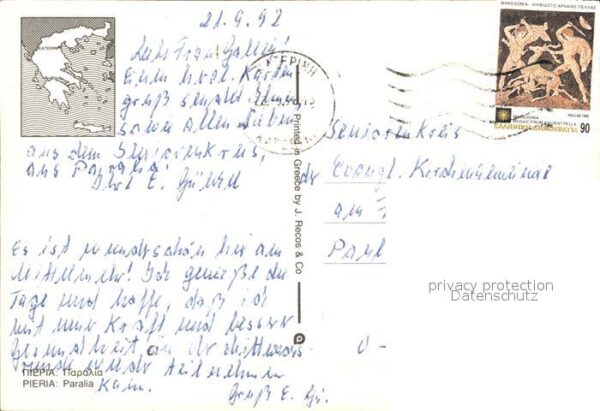 21.9.92
KATERINI
Liebe Frau
Einen herzl. Karten
gruß sendet Ihnen
sowie allen Lieben
aus dem Seniorenkreis,
aus Paralia
Ihre E.
Es ist wunderschön hier am
Mittelmeer! Ich genieße die
Tage und hoffe, daß ich
mit neuer Kraft und besserer
Gesundheit an der
runde wieder teilnehmen
kann.
Gruß E. Gü.
ΠΙΕΡΙΑ: Παραλία
PIERIA: Paralia
Printed in Greece by J. Recos & Co
ΤΕΡΙΝΗ
ΜΑΚΕΔΟΝΙΑ - ΨΗΦΙΔΩΤΟ ΑΡΧΑΙΑΣ ΠΕΛΛΑΣ
MACEDONIA
MOSAIC FROM ANCIENT PELLA
HELLAS 1992
ΕΛΛΗΝΙΚΗ ΔΗΜΟΚΡΑΤΙΑ 90
Seniorenkreis
der Evangl. Kirchengemeinde
am
privacy protection
Datenschutz